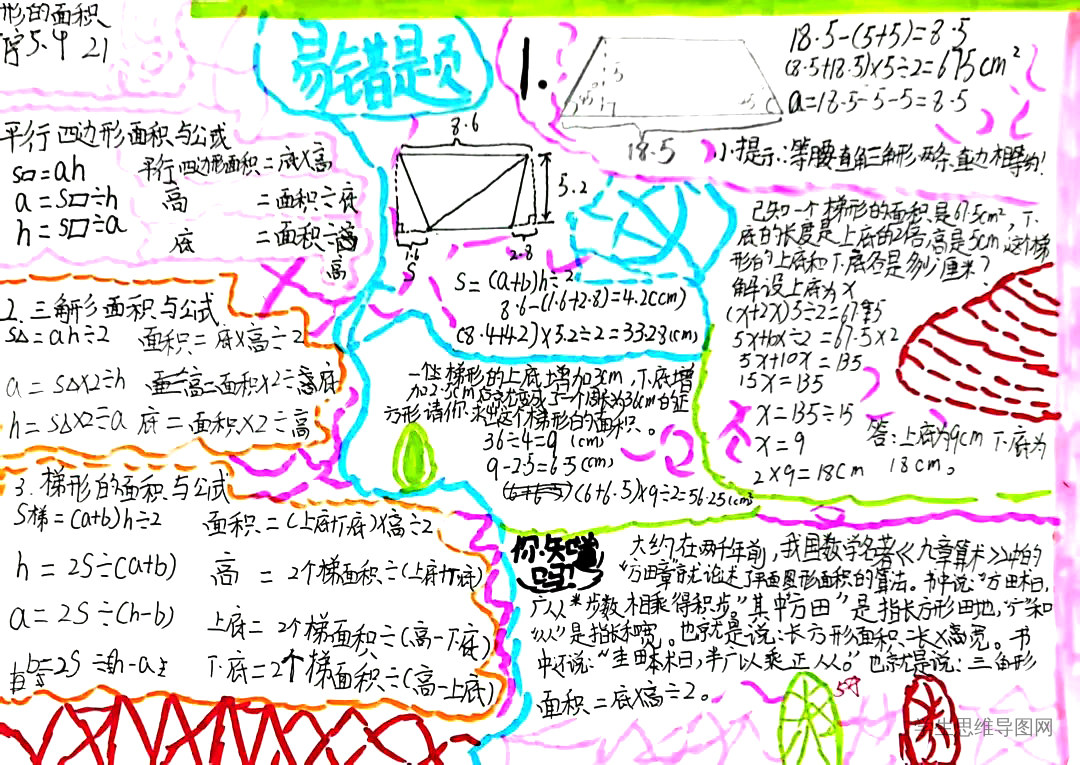 形的面积
5.4 21
平行四边形面积与公式
S▱=ah 平行四边形面积=底X高
a=S▱÷h 高 =面积÷底
h=S▱÷a 底 =面积÷高
2.三角形面积与公式
S△=ah÷2 面积=底X高÷2
a=S△X2÷h 高=面积X2÷底
h=S△X2÷a 底=面积X2÷高
3.梯形的面积与公式
S梯=(a+b)h÷2 面积=(上底+下底)X高÷2
h=2S÷(a+b) 高=2个梯面积÷(上底+下底)
a=2S÷(h-b) 上底=2个梯面积÷(高-下底)
b=2S÷(h-a) 下底=2个梯面积÷(高-上底)
易错是页
8.6
5.2
1.6
2.8
S
S=(a+b)h÷2
8.6-(1.6+2.8)=4.2(cm)
(8.4+4.2)×5.2÷2=33.28(cm)
1.
5
5
18.5
18.5-(5+5)=8.5
(8.5+18.5)×5÷2=67.5cm²
a=18.5-5-5=8.5
小提示:等腰直角三角形,两条直边相等的!
已知一个梯形的面积是67.5cm²,下
底的长度是上底的2倍,高是5cm,这个梯
形的上底和下底各是多少厘米?
解设上底为x
(x+2x)5÷2=67.5
5x+10x=67.5×2
5x+10x=135
15x=135
x=135÷15
x=9
2×9=18cm
答:上底为9cm 下底为
18cm。
一个梯形的上底增加3cm,下底增
加2.5cm后,就变成了一个周长为36cm的正
方形,请你求出这个梯形的面积。
36÷4=9 (cm)
9-2.5=6.5(cm)
(6+6.5)×9÷2=56.25(cm)
你知道
吗?
大约在两千年前,我国数学名著《九章算术》中的
"方田章"就论述了平面图形面积的算法。书中说:"方田术曰,
广从*步数相乘得积步。"其中"方田"是指长方形田地,"广"和
"从"是指长和宽。也就是说:长方形面积=长X宽。书
中还说:"圭田术曰,半广以乘正从。"也就是说:三角形
面积=底X高÷2。
学生思维导图网